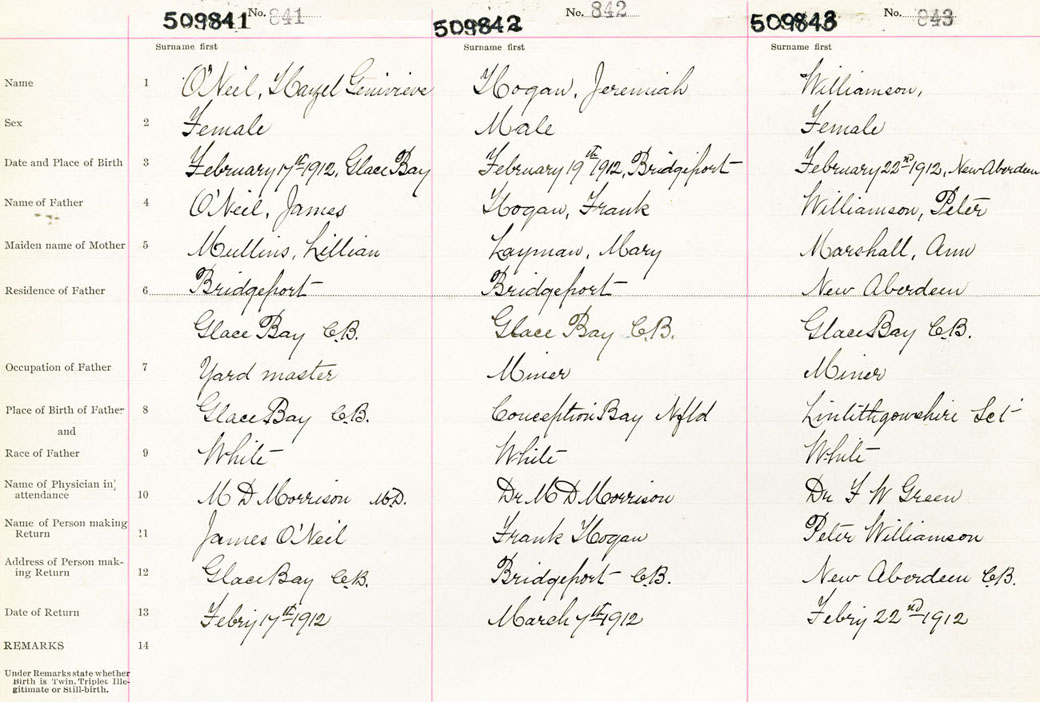 509841 No. 841 509842 No. 842 509843 No. 843
Surname first Surname first Surname first
Name 1 O'Neil, Hazel Genivieve Hogan, Jeremiah Williamson,
Sex 2 Female Male Female
Date and Place of Birth 3 February 17th 1912, Glace Bay February 19th 1912, Bridgeport February 22nd 1912, New Aberdeen
Name of Father 4 O'Neil, James Hogan, Frank Williamson, Peter
Maiden name of Mother 5 Mullins, Lillian Layman, Mary Marshall, Ann
Residence of Father 6 Bridgeport Bridgeport New Aberdeen
Glace Bay C.B. Glace Bay C.B. Glace Bay C.B.
Occupation of Father 7 Yard master Miner Miner
Place of Birth of Father 8 Glace Bay C.B. Conception Bay Nfld Linlithgowshire Sct
and
Race of Father 9 White White White
Name of Physician in
attendance 10 M D Morrison M.D. Dr M D Morrison Dr F W Green
Name of Person making
Return 11 James O'Neil Frank Hogan Peter Williamson
Address of Person mak-
ing Return 12 Glace Bay C.B. Bridgeport C.B. New Aberdeen C.B.
Date of Return 13 Febry 17th 1912 March 7th 1912 Febry 22nd 1912
REMARKS 14
Under Remarks state whether
Birth is Twin, Triplet Ille-
gitimate or Still-birth.